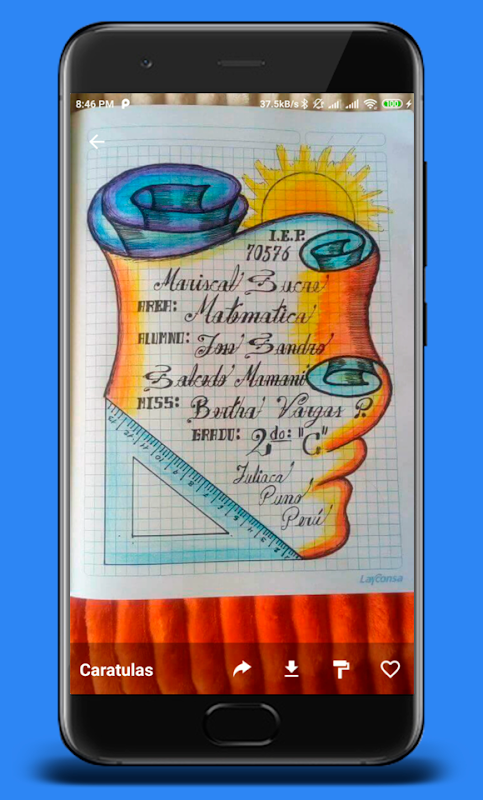 8:46 PM 37.5kB/s 100
I.E.P.
70576
Mariscal Sucre
AREA: Matematica
ALUMNO: Jose Sandro
Salcedo Mamani
MISS: Bertha Vargas P.
GRADO: 2do: "C"
Juliaca
Puno
Perú
LayConsa
Caratulas